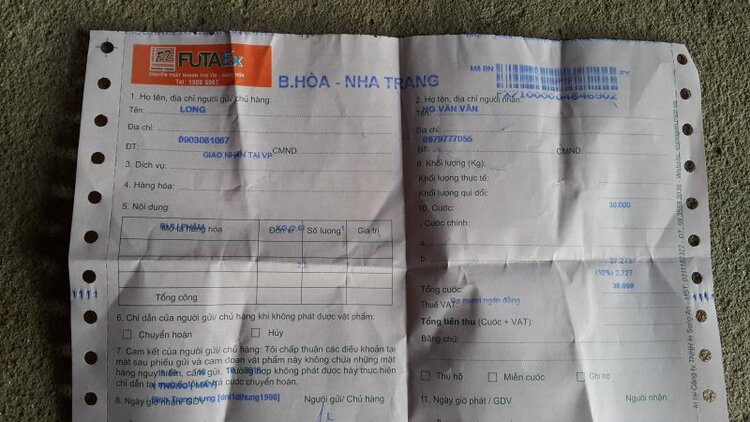 FUTAEx
CHUYỂN PHÁT NHANH THƯ TÍN - HÀNG HÓA
Tel: 1900 6067
B.HÒA - NHA TRANG
Mã ĐN
1. Họ tên, địa chỉ người gửi/ chủ hàng:
Tên: LONG
Địa chỉ:
0903061067
ĐT: CMND:
GIAO NHẬN TẠI VP
3. Dịch vụ:
4. Hàng hóa:
5. Nội dung
Mô tả hàng hóa Đơn vị Số lượng 1 Giá trị
Tổng cộng
6. Chỉ dẫn của người gửi/ chủ hàng khi không phát được vật phẩm:
Chuyển hoàn Hủy
7. Cam kết của người gửi/ chủ hàng: Tôi chấp thuận các điều khoản tại
mặt sau phiếu gửi và cam đoan vật phẩm này không chứa những mặt
hàng nguy hiểm, cấm gửi. Trường hợp không phát được hay thực hiện
chỉ dẫn tại mục 6, tôi sẽ trả cước chuyển hoàn.
8. Ngày giờ nhận/ GDV Người gửi/ Chủ hàng
2. Họ tên, địa chỉ người nhận:
Tên: NG VĂN VÂN
Địa chỉ:
0979777055
ĐT: CMND:
9. Khối lượng (Kg):
Khối lượng thực tế:
Khối lượng qui đổi:
10. Cước: 30.000
- Cước chính:
a.
b. 27.273
(10%) 2.727
Tổng cước: 30.000
Thuế VAT: Ba mươi ngàn đồng
Tổng tiền thu (Cước + VAT):
Bằng chữ:
Thu hộ Miễn cước Ghi nợ
11. Ngày giờ phát / GDV Người nhận